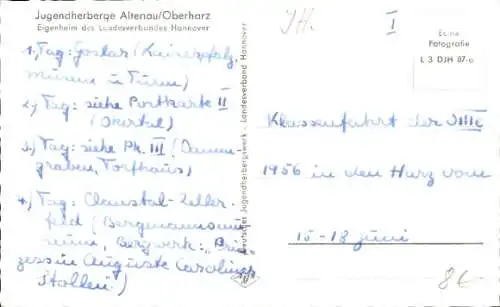 Jugendherberge Altenau/Oberharz
Eigenheim des Landesverbandes Hannover
1. Tag: Goslar (Kaiserpfalz,
museum u. Turm)
2. Tag: siehe Postkarte II
(Okertal)
3. Tag: siehe Pk. III (Damm-
graben, Torfhaus)
4. Tag: Claustal-Zeller-
feld (Bergmannsmu-
seum, Bergwerk: „Prin-
zessin Auguste Caroliner
Stollen.)
Deutsches Jugendherbergswerk - Landesverband Hannover
JH.
I
Echte
Fotografie
L 3 DJH 87-o
Klassenfahrt der VIIIc
1956 in den Harz vom
15-18 Juni
8€